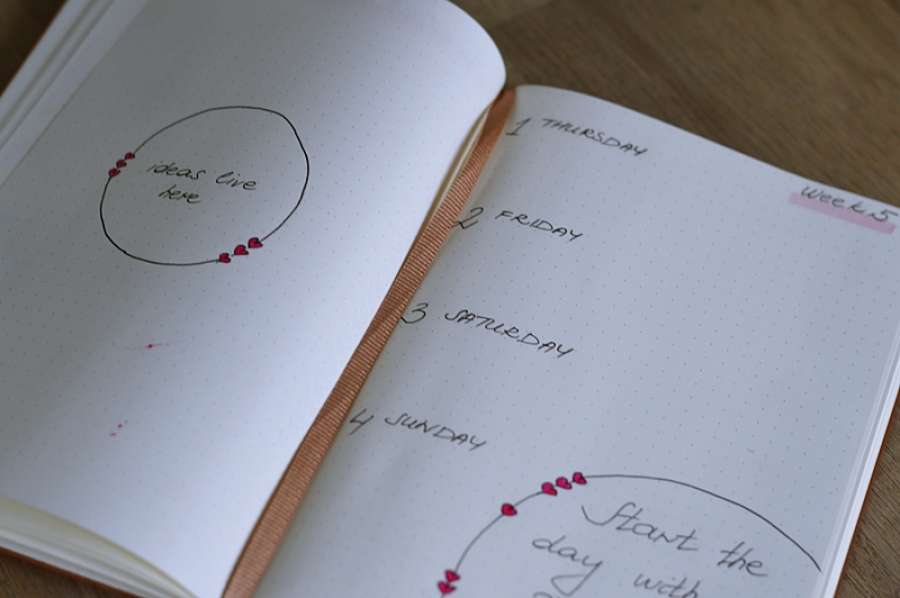 ideas live
here
Week 5
1 THURSDAY
2 FRIDAY
3 SATURDAY
4 SUNDAY
Start the
day with